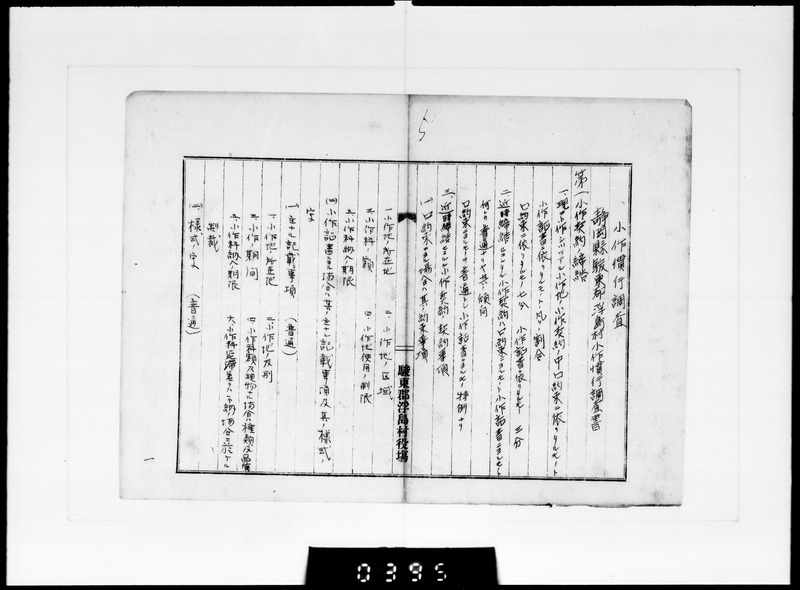 小作慣行調査
静岡縣駿東郡浮島村小作慣行調査書
第一 小作契約ノ締結
一、現ニ小作シツツアル小作地ノ小作契約ノ中口約束ニ依リタルモノト
小作証書ニ依リタルモノトノ凡ソノ割合
口約束ニ依リタルモノ 七分 小作証書ニ依リタルモノ 三分
二、近時締結セラルル小作契約ハ口約束ニヨルモノト小作証書ニヨルモノト
何レカ普通ナリヤ 其ノ傾向
口約束ニヨルモノヲ普通トシ小作証書ニヨルモノハ特例ナリ
三、近時締結セラルル小作契約ノ契約事項
(一) 口約束ニヨル場合ハ其ノ約束事項
一、小作地ノ所在地 二、小作地ノ区域
三、小作料ノ額 四、小作地使用ノ制限
五、小作料納入ノ期限
(四) 小作証書ニヨル場合ハ其ノ主ナル記載事項及其ノ様式ノ
字
(一) 主ナル記載事項 (普通)
一、小作地ノ所在地 二、小作地ノ反別
三、小作期間 四、小作料額及現物ニ係ル場合ハ種類及品質
五、小作料納入期限 六、小作料延滞若クハ不納ノ場合ニ於ケル
制裁
(二) 様式ノ字文 (普通)
駿東郡浮島村役場
一
0395